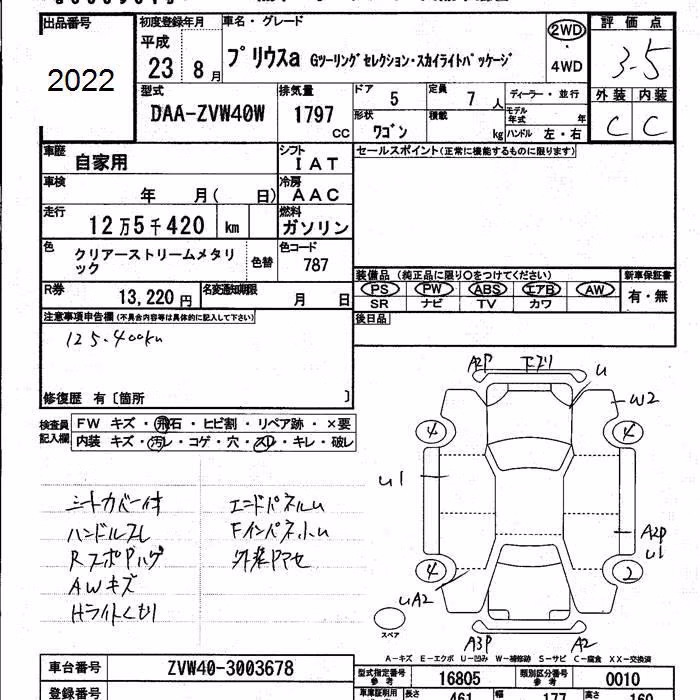 出品番号 初度登録年月 車名・グレード 評価点
2022 平成 23 8月 プリウスa Gツーリングセレクション・スカイライトパッケージ 2WD・4WD 3.5
型式 排気量 ドア 5 定員 7人 ディーラー・並行 外装 内装
DAA-ZVW40W 1797cc 形状 ワゴン 積載 kg モデル年式 年 ハンドル 左・右 C C
車歴 自家用 シフト IAT セールスポイント(正常に機能するものに限ります)
車検 年 月( 日) 冷房 AAC
走行 12万5千420 km 燃料 ガソリン
色 クリアーストリームメタリック 色替 色コード 787
装備品 (純正品に限り○をつけてください) 新車保証書
PS PW ABS エアB AW 有・無
SR ナビ TV カワ
R券 13,220円 名変通知期限 月 日
後日品
注意事項申告欄(不具合内容等は具体的に記入して下さい)
125.400km
修復歴 有〔箇所 〕
検査員記入欄 FW キズ・飛石・ヒビ割・リペア跡・×要
内装 キズ・汚レ・コゲ・穴・スレ・キレ・破レ
シートカバー付 エンドパネルU
ハンドルスレ Fインパネ小U
RスポPハゲ 外装Pマセ
AWキズ
Hライトくもり
A2P 下ズリ U
W2
4 4
U1
A2P
U1
4 2
UA2
スペア
A3P A2
A-キズ E-エクボ U-凹み W-補修跡 S-サビ C-腐食 XX-交換済
車台番号 ZVW40-3003678 型式指定番号 参考 16805 類別区分番号 参考 0010
登録番号 車庫証明用 長さ 461 幅 177 高さ 160